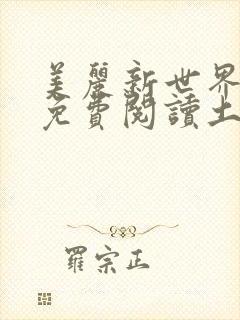 美麗新世界
免費閱讀土
羅宗正